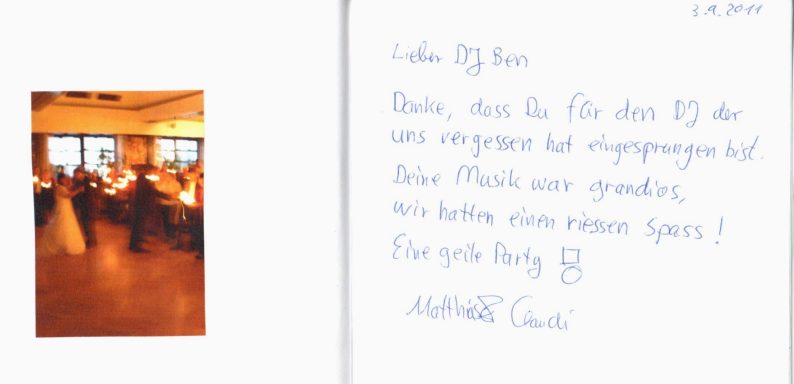 3.9.2011
Lieber DJ Ben
Danke, dass Du für den DJ der
uns vergessen hat eingesprungen bist.
Deine Musik war grandios,
wir hatten einen riessen Spass!
Eine geile Party !
Matthias & Claudi